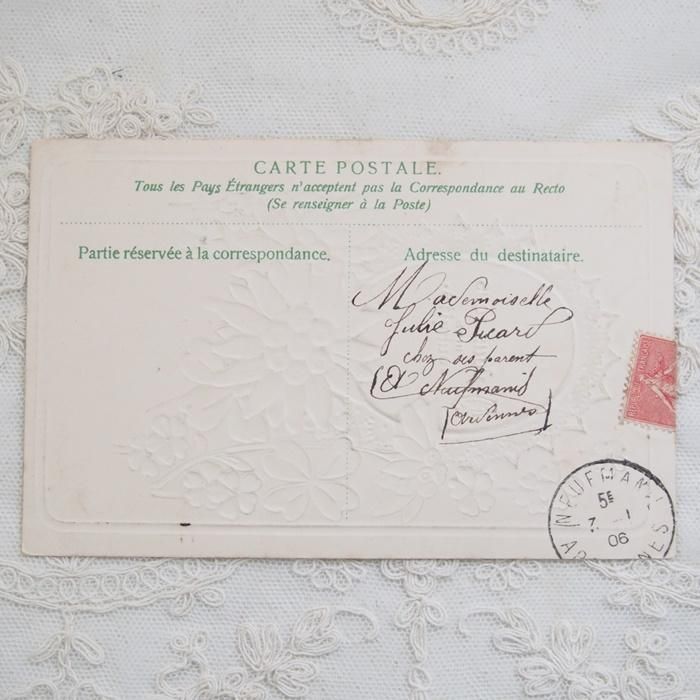 CARTE POSTALE.
Tous les Pays Étrangers n'acceptent pas la Correspondance au Recto
(Se renseigner à la Poste)
Partie réservée à la correspondance.
Adresse du destinataire.
Mademoiselle
Julie Picard
chez ses parent
A Neufmanis
Ardennes
NEUFMAN
5E
7 -1
06
NES